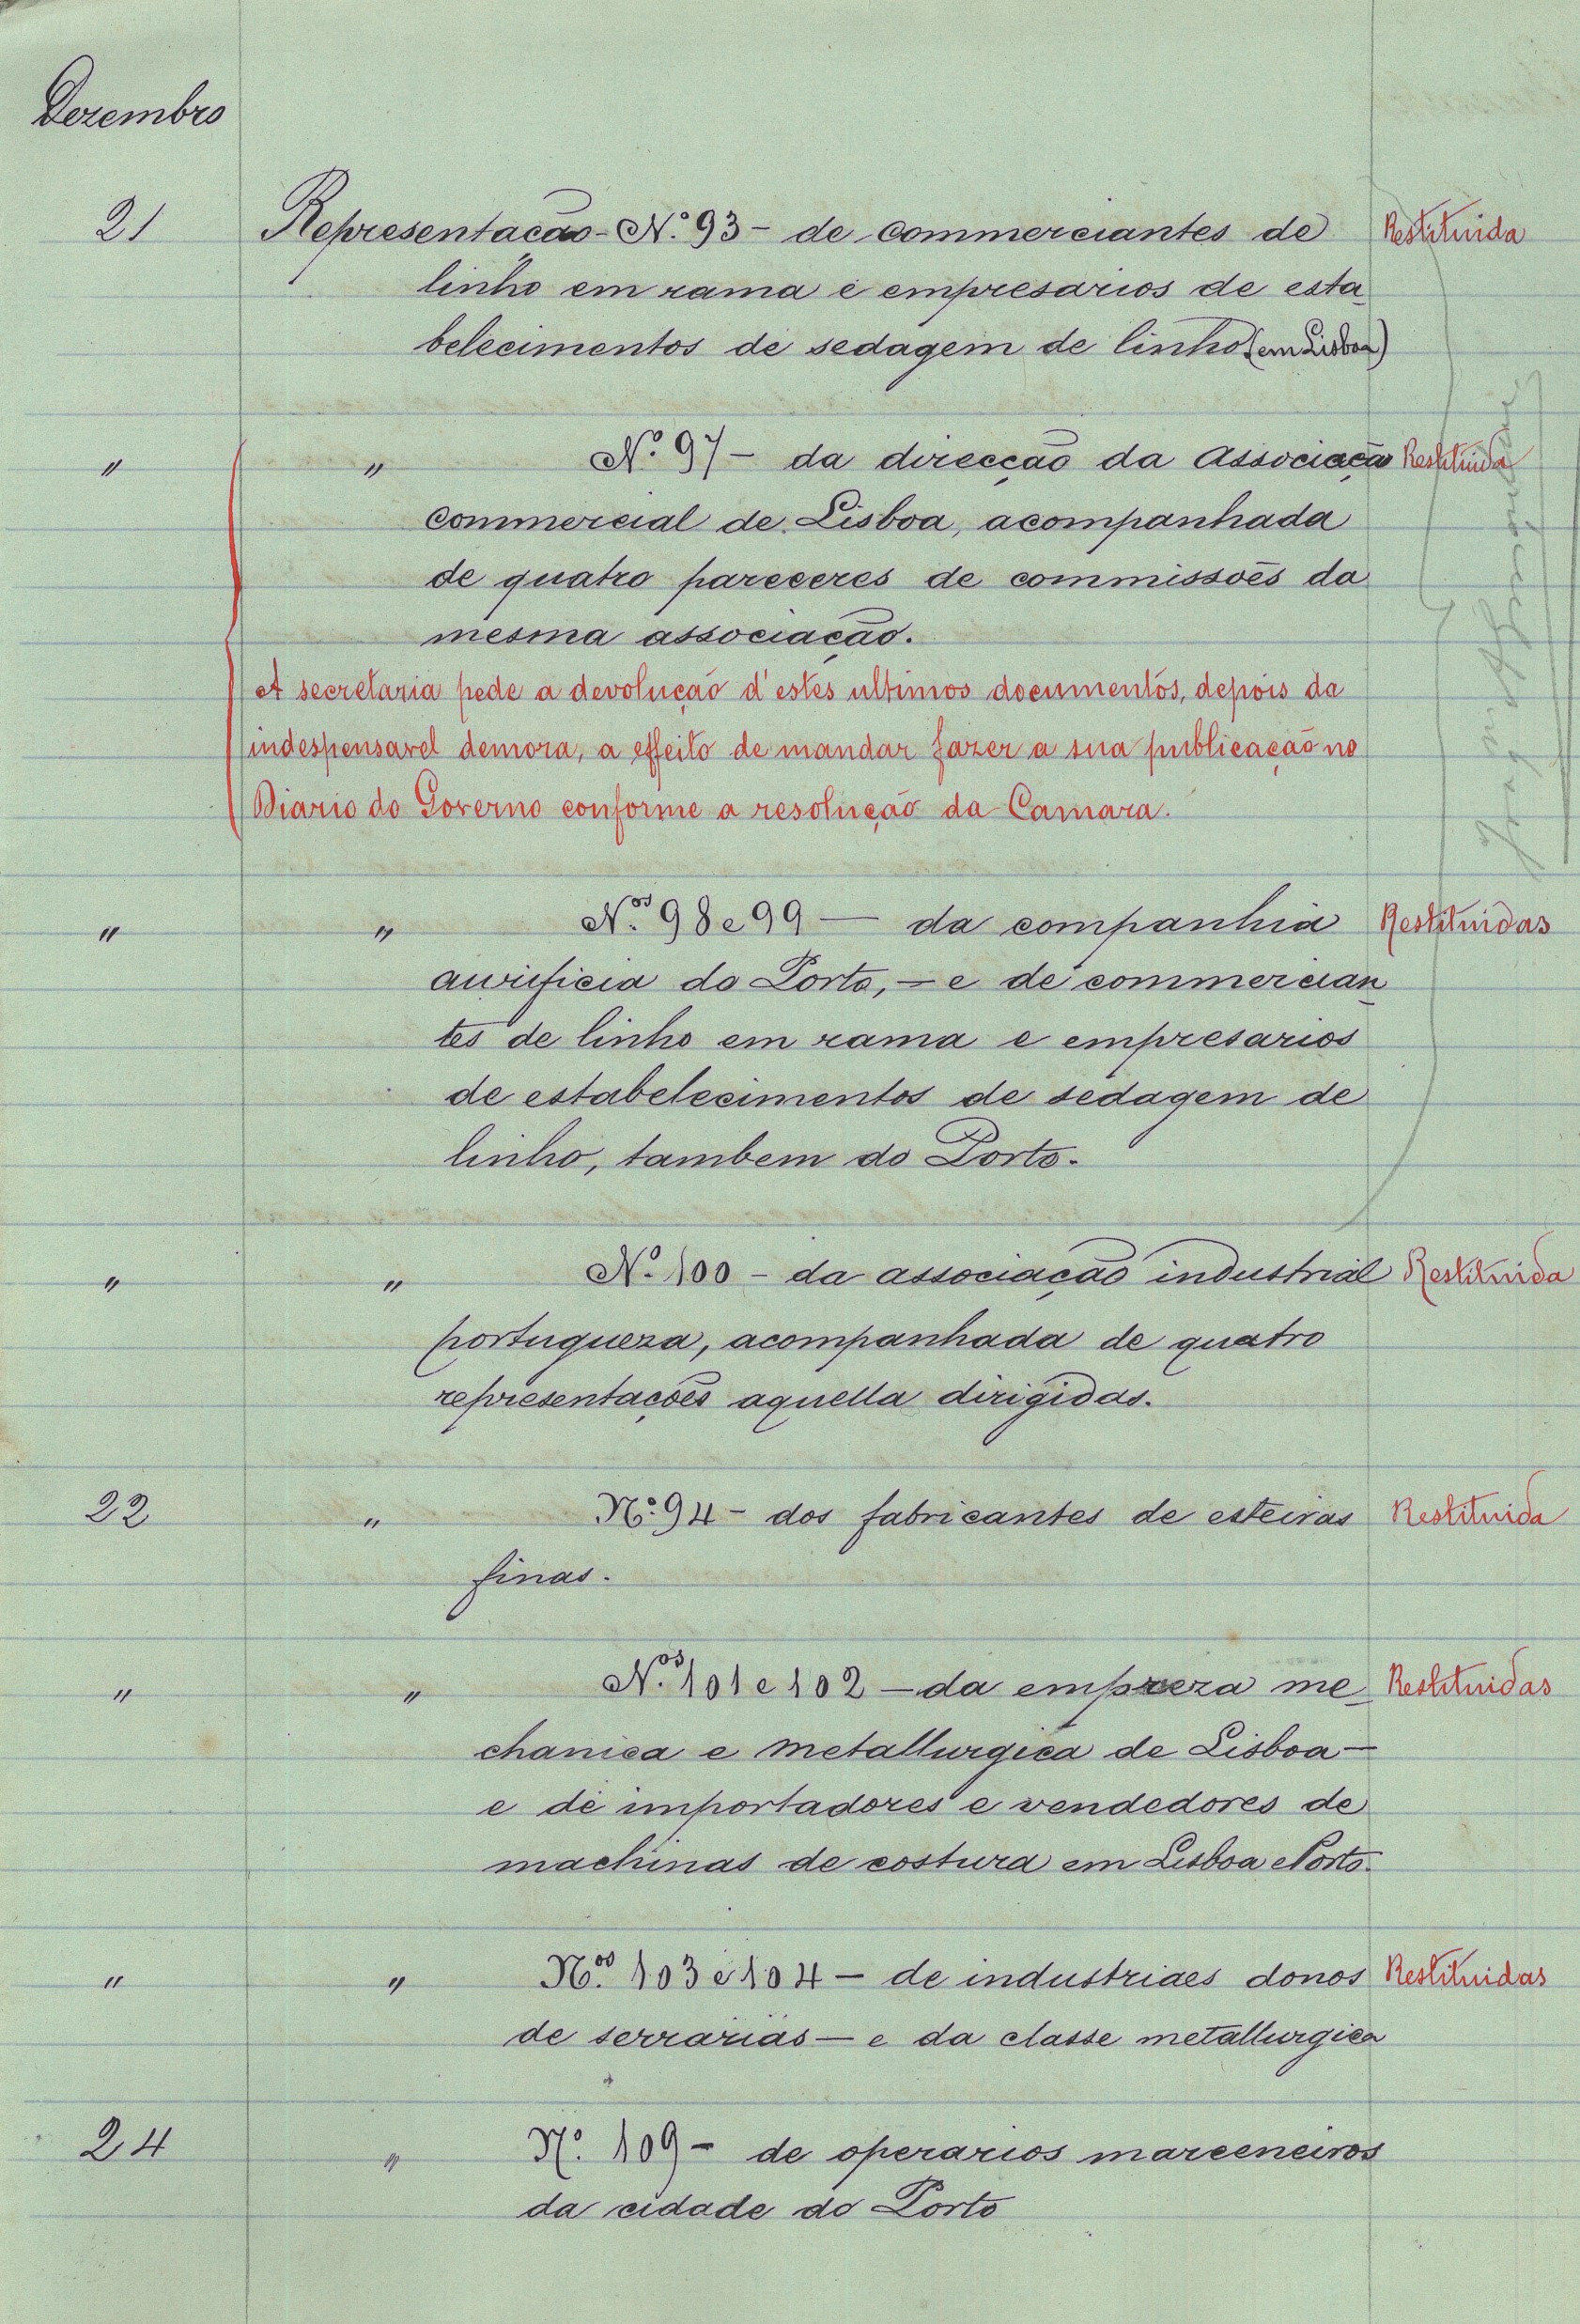 Dezembro
21 Representação - N.º 93 - de commerciantes de Restituida
linho em rama e empresarios de esta-
belecimentos de sedagem de linho (em Lisboa)
" " N.º 97 - da direcção da Associação Restituida
commercial de Lisboa, acompanhada
de quatro pareceres de commissões da
mesma associação.
A secretaria pede a devolução d'estes ultimos documentos, depois da
indespensavel demora, a effeito de mandar fazer a sua publicação no
Diario do Governo conforme a resolução da Camara.
" " N.os 98 e 99 — da companhia Restituidas
aurificia do Porto, - e de commercian-
tes de linho em rama e empresarios
de estabelecimentos de sedagem de
linho, tambem do Porto.
" " N.º 100 - da associação industrial Restituida
portugueza, acompanhada de quatro
representações aquella dirigidas.
22 " N.º 94 - dos fabricantes de esteiras Restituida
finas.
" " N.os 101 e 102 - da empreza me- Restituidas
chanica e metallurgica de Lisboa -
e de importadores e vendedores de
machinas de costura em Lisboa e Porto.
" " N.os 103 e 104 - de industriaes donos Restituidas
de serrarias - e da classe metallurgica
24 " N.º 109 - de operarios marceneiros
da cidade do Porto